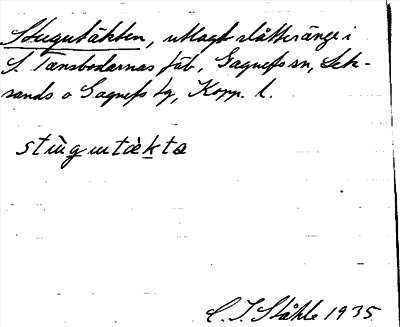 Stugutäkten, utlagd slåtteränge i
S. Tansbodarnas fäb., Gagnefs sn, Lek-
sands o Gagnefs tg, Kopp. l.
stùgutækta
C. I. Ståhle 1935